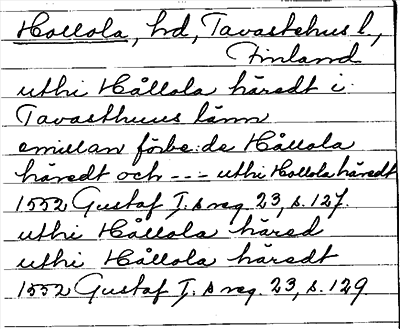 Hollola, hd, Tavastehus l.,
Finland
uthi Hållola häredt i
Tavasthuus länn
emillan förbe:de Hållola
häredt och --- uthi Hollola häredt
1552 Gustaf I:s reg. 23, s. 127.
uthi Hållola häred
uthi Hållola häredt
1552 Gustaf I:s reg. 23, s. 129.